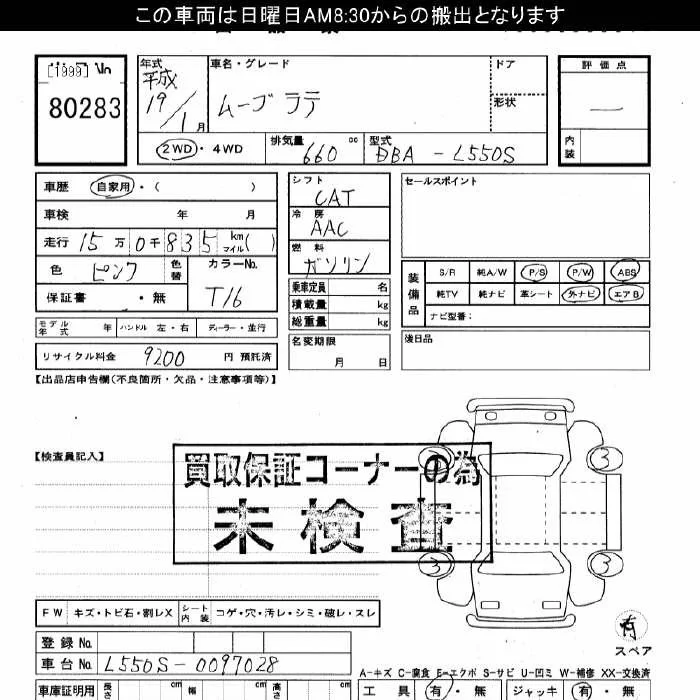 この車両は日曜日AM8:30からの搬出となります
[1999]
80283
年式 平成
19/1月
車名・グレード
ムーブ ラテ
ドア
形状
評価点
―
内装
2WD・4WD
排気量 660 cc
型式 DBA-L550S
車歴 自家用・( )
車検 年 月
走行 15万0千835 km マイル( )
色 ピンク 色替
カラーNo. T16
保証書 ・無
モデル年式 年 ハンドル 左・右 ディーラー・並行
リサイクル料金 9200 円 預託済
シフト CAT
冷房 AAC
燃料 ガソリン
乗車定員 名
積載量 kg
総重量 kg
名変期限
月 日
セールスポイント
装備品
S/R 純A/W P/S P/W ABS
純TV 純ナビ 革シート 外ナビ エアB
ナビ型番:
後日品
【出品店申告欄(不良箇所・欠品・注意事項等)】
【検査員記入】
買取保証コーナーの為
未検査
3 3
3 3
有
スペア
FW キズ・トビ石・割レX シート内装 コゲ・穴・汚レ・シミ・破レ・スレ
登録No.
車台No. L550S-0097028
A-キズ C-腐食 E-エクボ S-サビ U-凹ミ W-補修 XX-交換済
車庫証明用 長さ cm 幅 cm 高さ cm
工具 有・無 ジャッキ 有・無